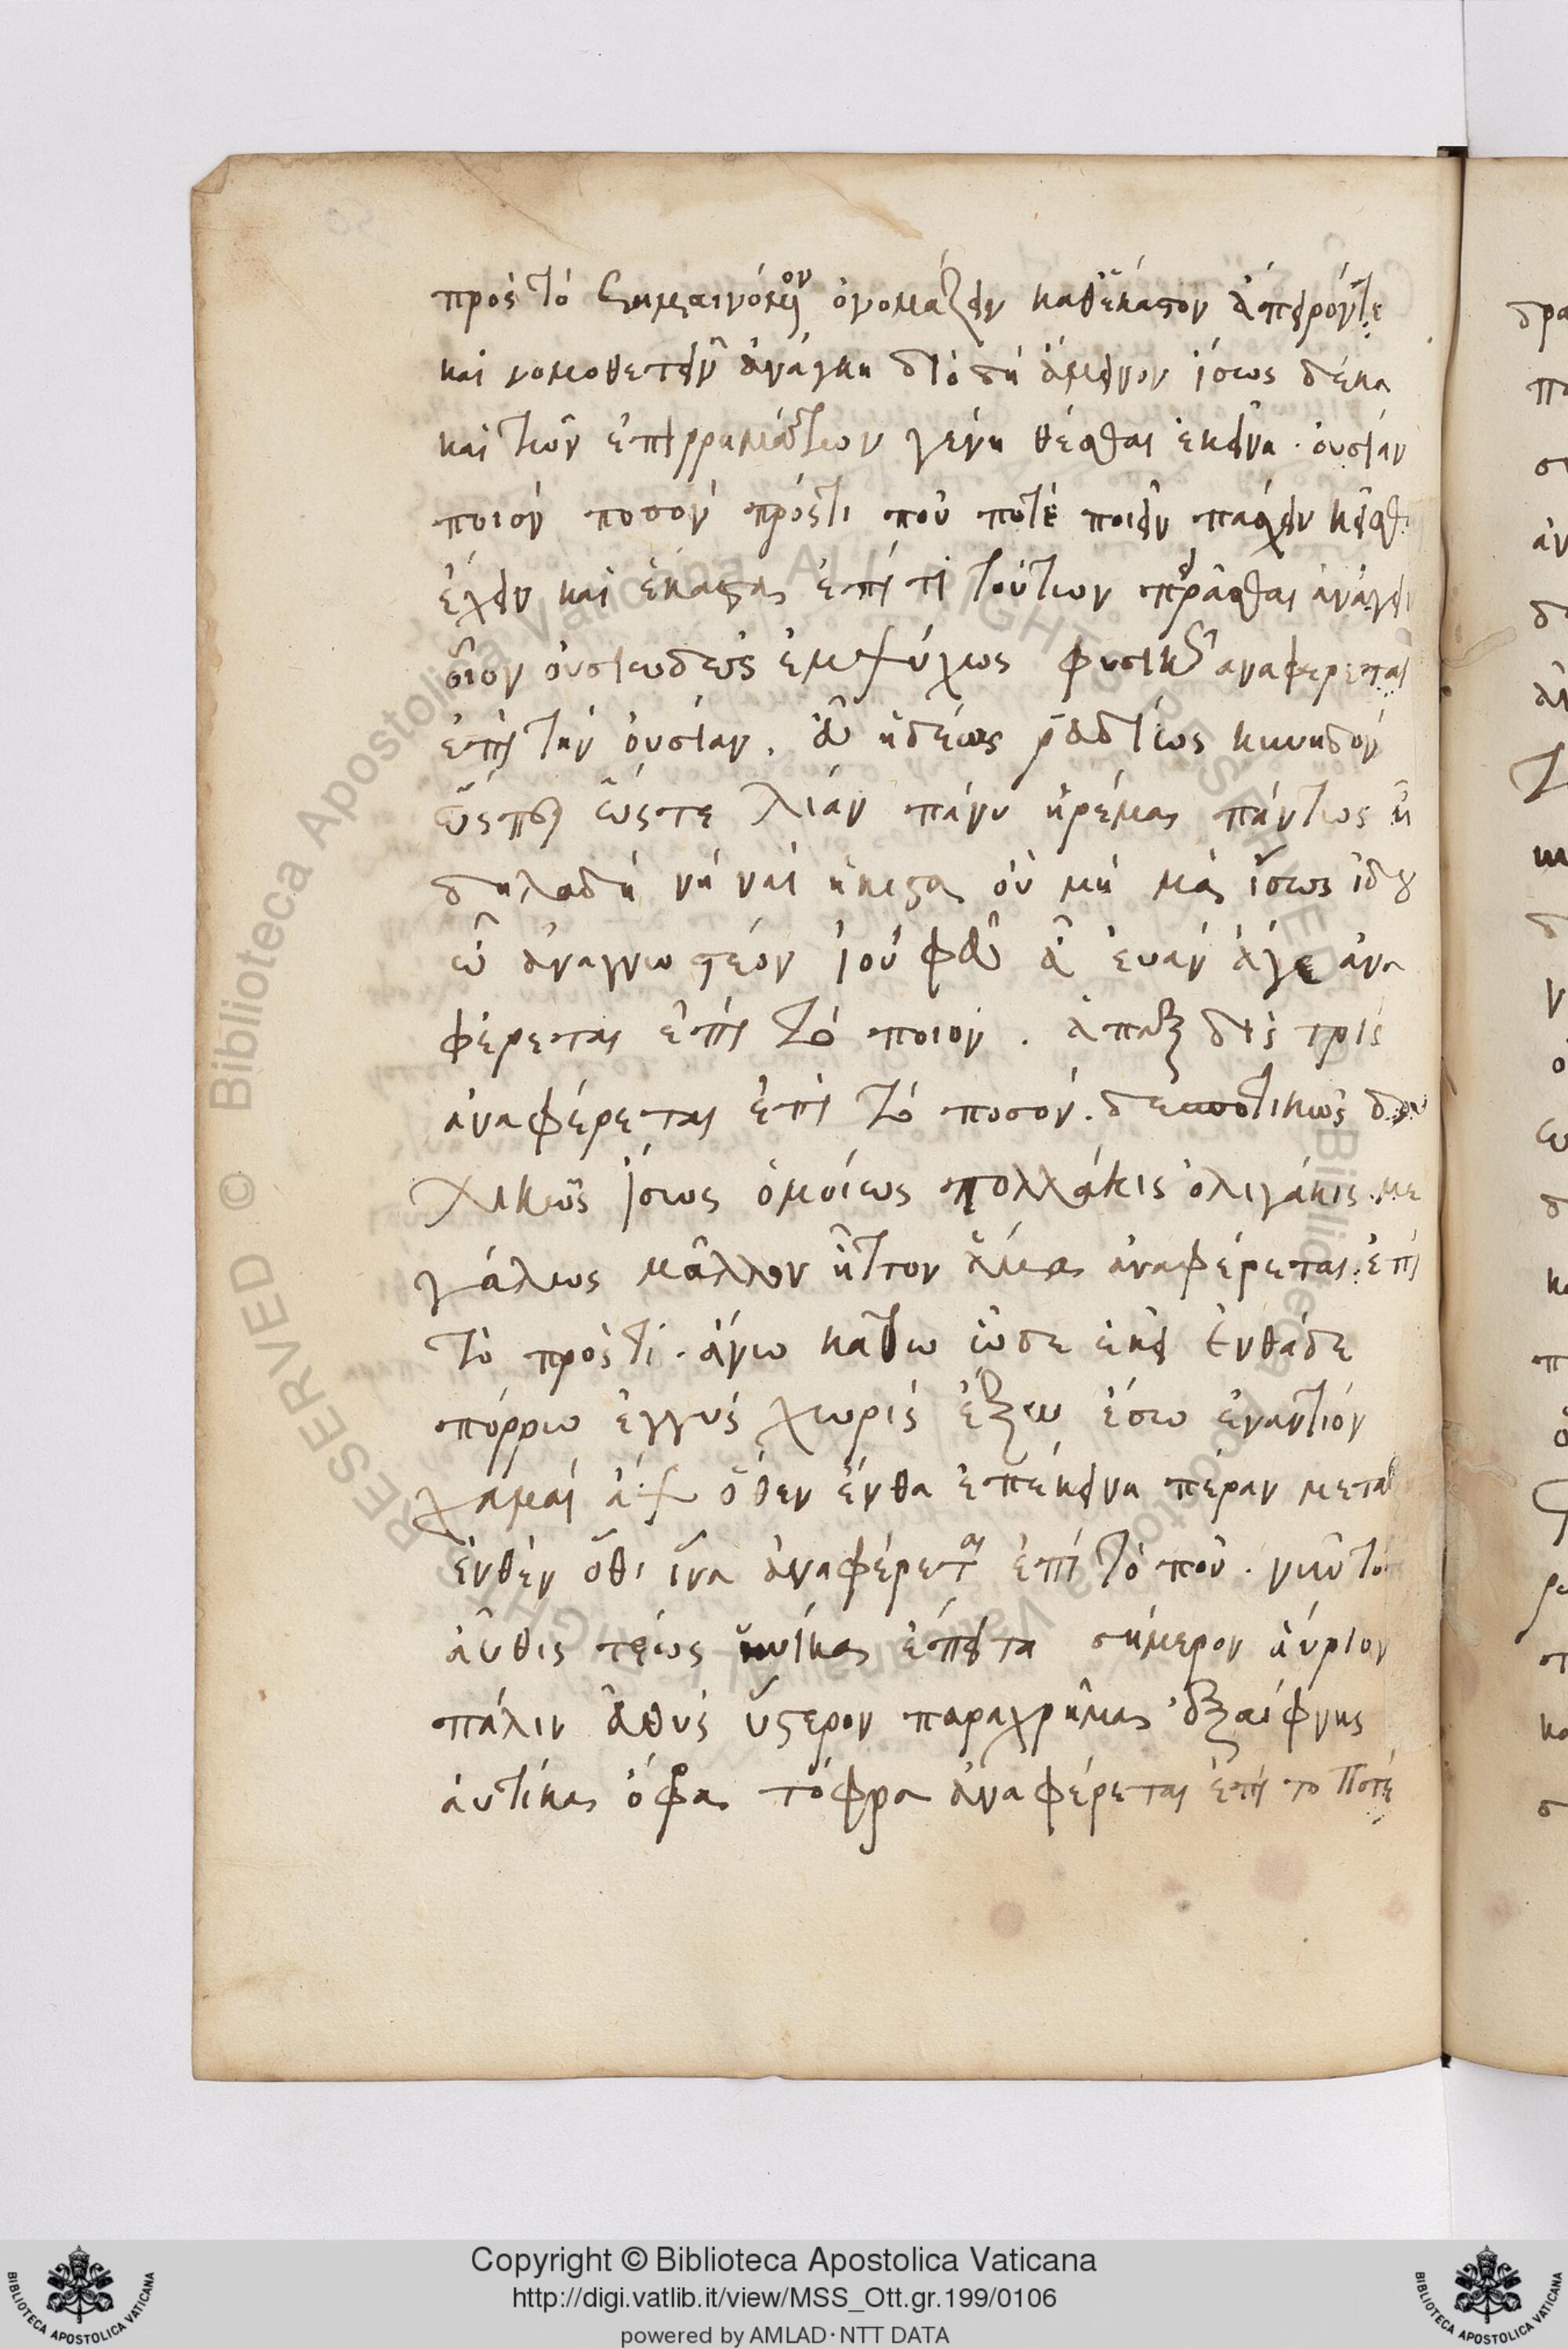 πρὸς τὸ σημαινόμενον ὀνομάζειν καθέκαστον ἄπειρόν τε
καὶ νομοθετεῖν ἀνάγκη διὸ δὴ ἄμεινον ἴσως δέκα
καὶ τῶν ἐπιρρημάτων γένη θέσθαι ἐκεῖνα · οὐσίαν
ποιόν ποσόν πρόστι ποῦ ποτὲ ποιεῖν πάσχειν κεῖσθαι
ἔχειν καὶ ἕκαστα ἐπί τι τούτων πειρᾶσθαι ἀνάγειν
οἷον οὐσιωδῶς ἐμψύχως φυσικῶς ἀναφέρεται
ἐπὶ τὴν οὐσίαν . εὖ ἡδέως ῥαδίως κυνηδόν
ὥσπερ ὥστε λίαν πάνυ ἠρέμα πάντως ἢ
δηλαδή νή ναί ἥκιστα οὐ μή μά ἴσως ἰδού
ὦ ἀναγνωστέον ἰού φεῦ ἆ εὐάν ἄγε ἀνα
φέρεται ἐπὶ τὸ ποιόν . ἅπαξ δίς τρίς
ἀναφέρεται ἐπὶ τὸ ποσόν . δεσποτικῶς δου
λικῶς ἴσως ὁμοίως πολλάκις ὀλιγάκις με
γάλως μᾶλλον ἧττον ἅμα ἀναφέρεται ἐπὶ
τὸ πρόστί . ἄνω κάτω ὧδε ἐκεῖ ἐνθάδε
πόρρω ἐγγύς χωρίς ἔξω ἔσω ἐναντίον
χαμαί ἄψ ὅθεν ἔνθα ἐπέκεινα πέραν μεταξὺ
ἔνθεν ὅθι ἵνα ἀναφέρεται ἐπὶ τὸ ποῦ . νῦν τότε
αὖθις τέως ἡνίκα ἔπειτα σήμερον αὔριον
πάλιν εὐθύς ὕστερον παραχρῆμα ἐξαίφνης
αὐτίκα ὄφρα τόφρα ἀναφέρεται ἐπὶ τὸ ποτέ
Copyright © Biblioteca Apostolica Vaticana
http://digi.vatlib.it/view/MSS_Ott.gr.199/0106
powered by AMLAD·NTT DATA